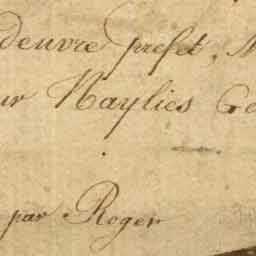 deuvre prefet,
ur Naylies Ge
par Roger